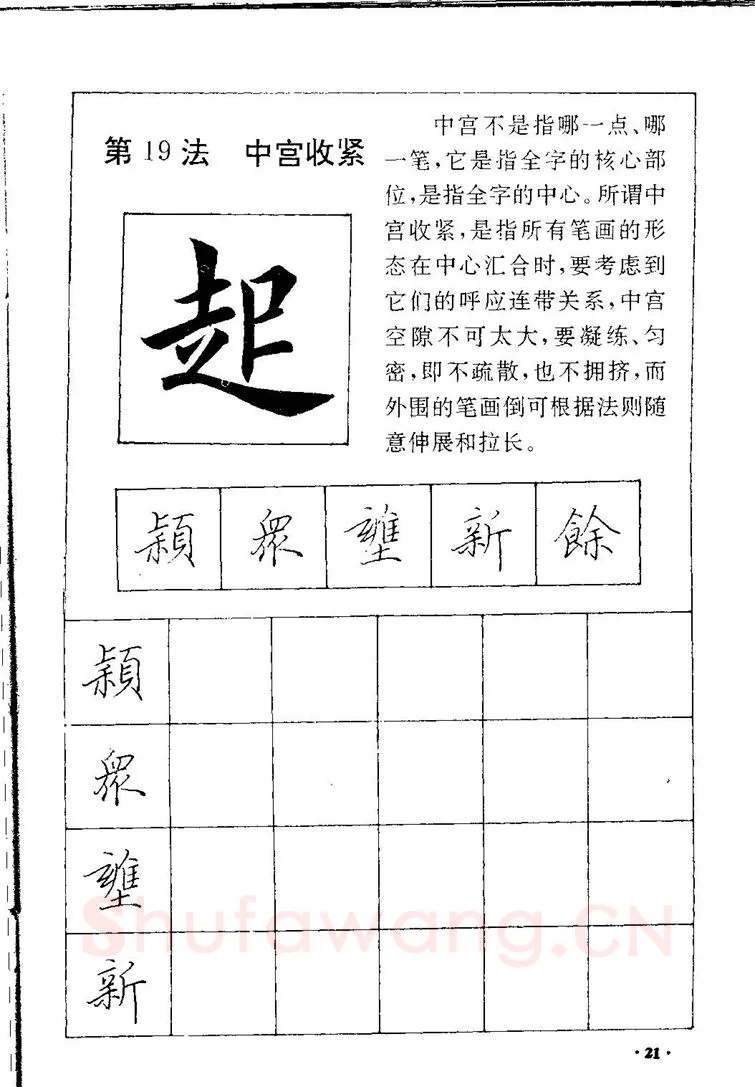 第19法 中宫收紧
起
中宫不是指哪一点、哪
一笔,它是指全字的核心部
位,是指全字的中心。所谓中
宫收紧,是指所有笔画的形
态在中心汇合时,要考虑到
它们的呼应连带关系,中宫
空隙不可太大,要凝练、匀
密,即不疏散,也不拥挤,而
外围的笔画倒可根据法则随
意伸展和拉长。
颖 眾 壅 新 餘
颖
眾
壅
新
Shufawang.CN
·21·